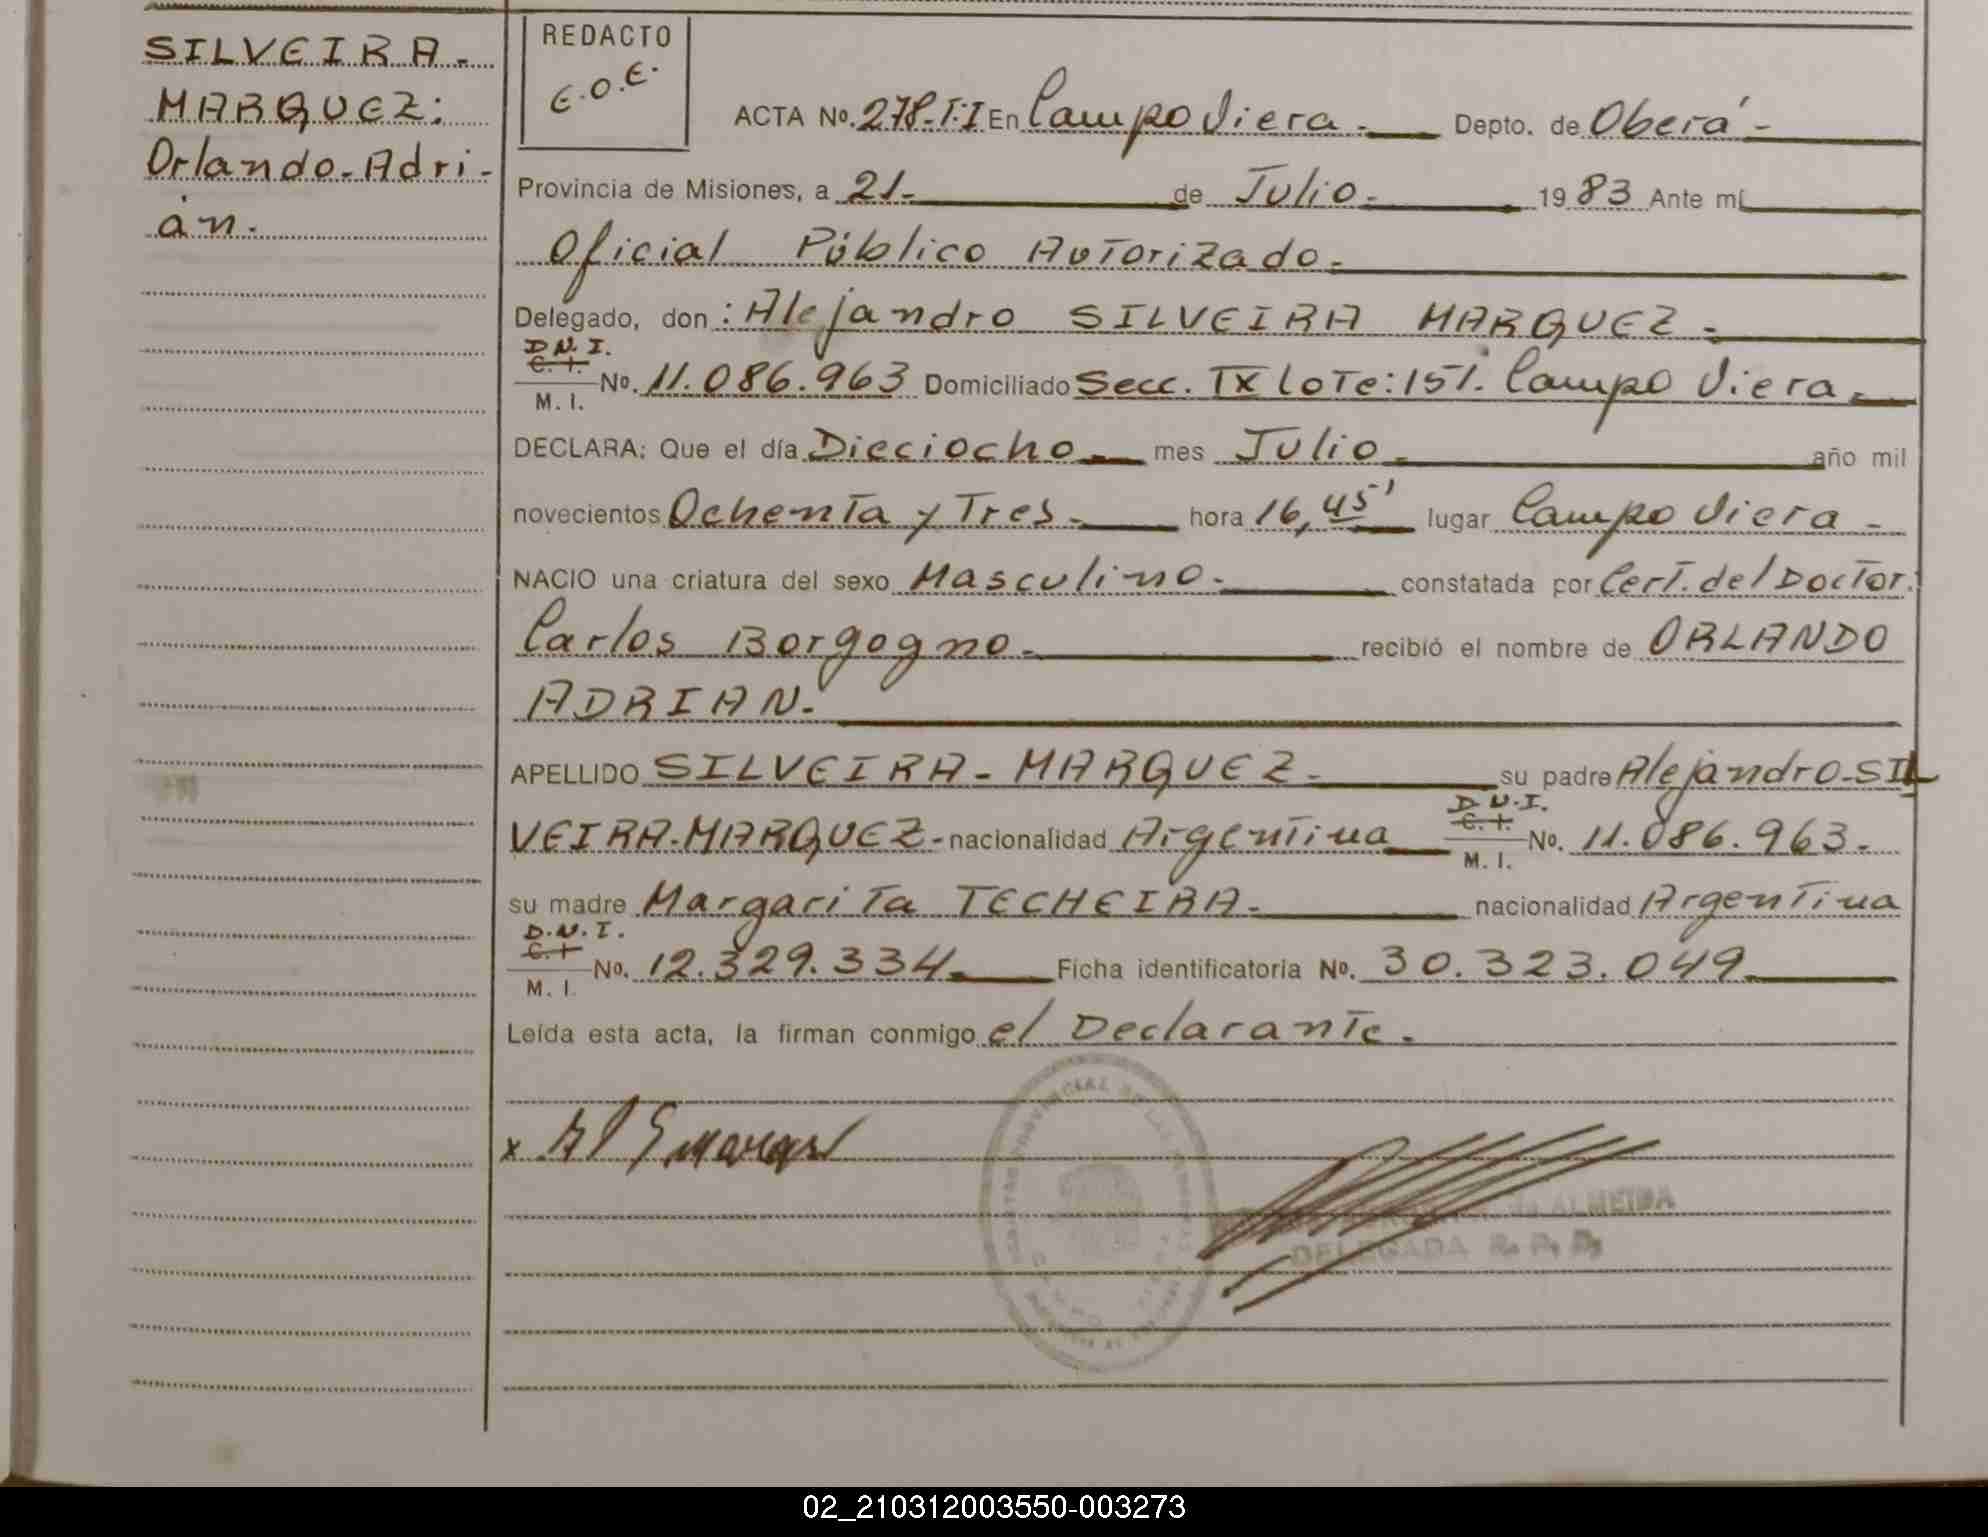 SILVEIRA-
MARQUEZ:
Orlando-Adri-
án.
REDACTO
E.O.E.
ACTA No. 278-T:I En Campo Viera.- Depto. de Oberá-
Provincia de Misiones, a 21.- de Julio.- 1983 Ante mí
Oficial Público Autorizado.-
Delegado, don: Alejandro SILVEIRA MARQUEZ.-
D.N.I.
C.I.
M. I. No. 11.086.963 Domiciliado Secc. IX Lote:151. Campo Viera.-
DECLARA: Que el día Dieciocho.- mes Julio.- año mil
novecientos Ochenta y Tres.- hora 16,45' lugar Campo Viera.-
NACIO una criatura del sexo Masculino.- constatada por Cert. del Doctor.
Carlos Borgogno.- recibió el nombre de ORLANDO
ADRIAN.-
APELLIDO SILVEIRA-MARQUEZ.- su padre Alejandro-SIL
VEIRA-MARQUEZ- nacionalidad Argentina D.N.I. C.I. M. I. No. 11.086.963.-
su madre Margarita TECHEIRA.- nacionalidad Argentina
D.N.I.
C.I.
M. I. No. 12.329.334.- Ficha identificatoria No. 30.323.049
Leída esta acta, la firman conmigo el Declarante.-
x
ALMEIDA
DELEGADA R. P. P.
02_210312003550-003273